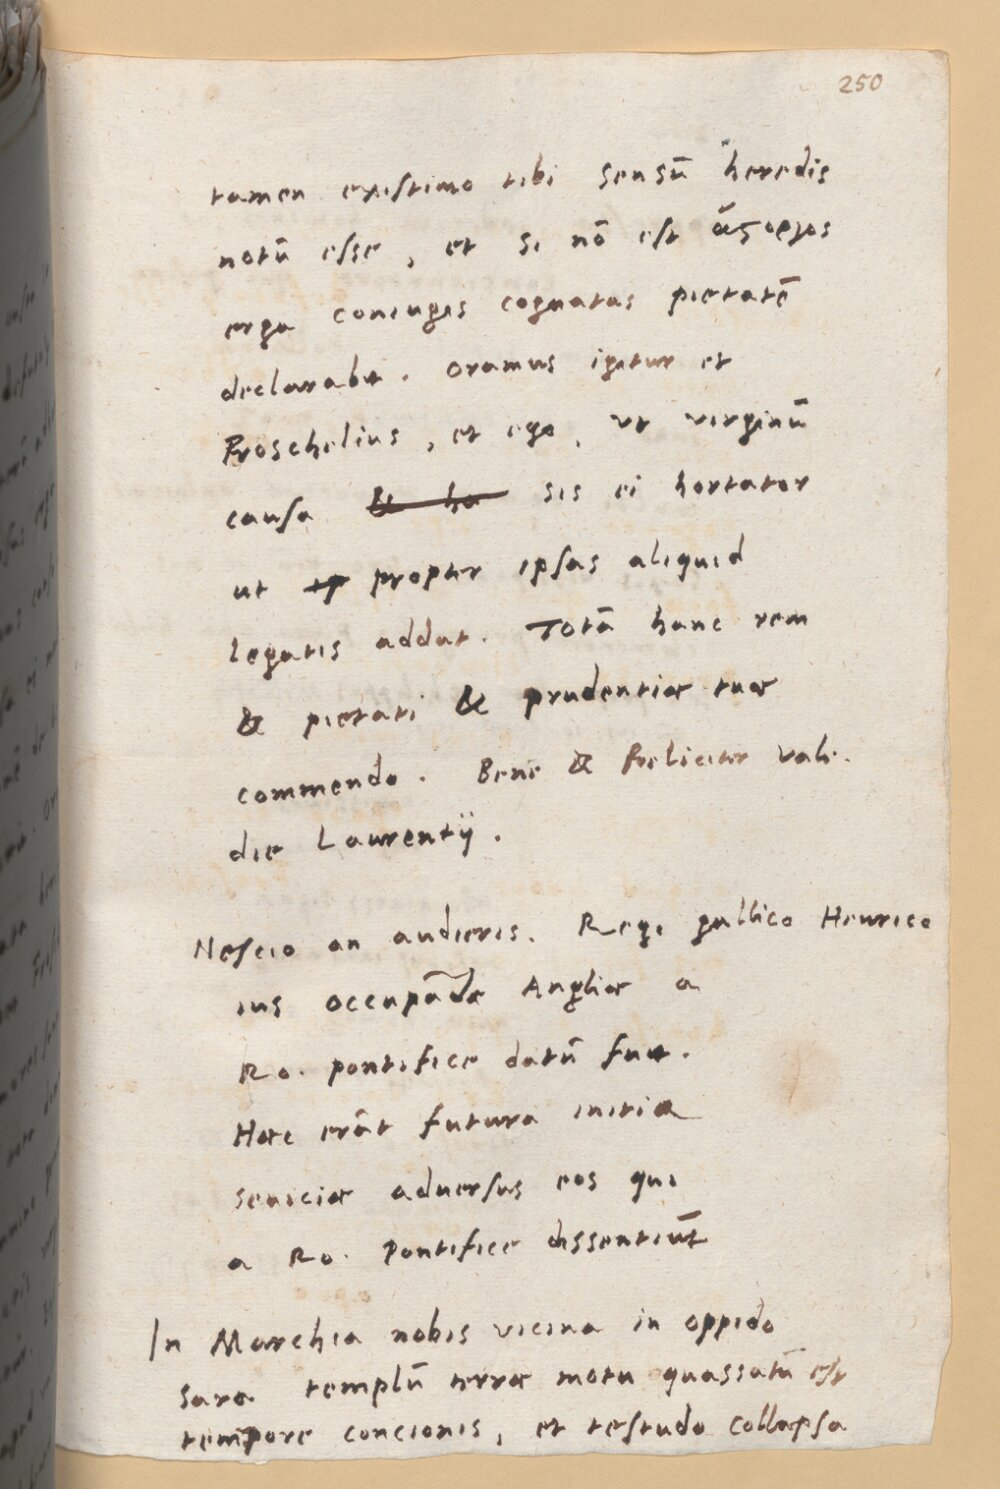 250
tamen existimo tibi sensū heredis
notū esse, et si nō est ἄστοργος
erga coniugis cognatas pietatē
declarabit. Oramus igitur et
Froschelius, et ego, vt virginū
causa & ha sis ei hortator
ut ip propter ipsas aliquid
legatis addat. Totā hanc rem
& pietati & prudentiæ tuæ
commendo. Bene & fœliciter vale.
die Laurentij.
Nescio an audieris. Regi gallico Henrico
ius occupādæ Angliæ a
Ro. pontifice datū fuit.
Hæc erāt futura initia
seuiciæ aduersus eos qui
a Ro. Pontifice dissentiūt
In Marchia nobis vicina in oppido
Sara templū terræ motu quassatū est
tempore concionis, et testudo collapsa